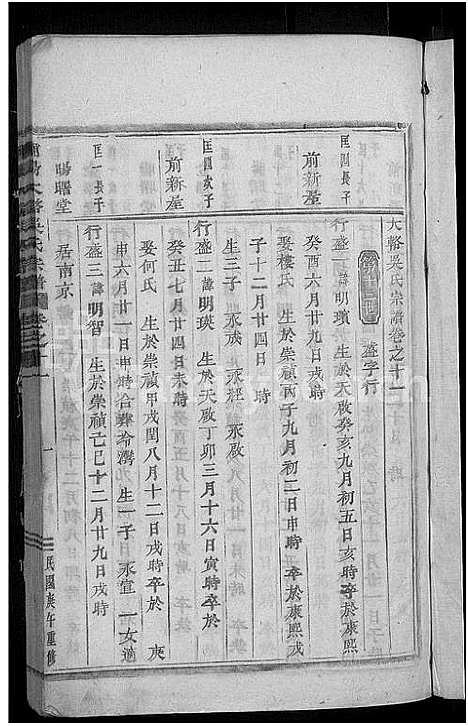 大輅吳氏宗譜卷之十一
盛字行
匡四長子
前新屋
行盛一 諱明瓚 生於天啟癸亥九月初五日亥時卒於康熙
癸酉六月廿九日戌時
娶樓氏 生於崇禎丙子九月初二日申時 卒於康熙戊
子十二月廿四日 時
生三子 永 永經 永啟
匡四次子
前新屋
行盛二 諱明瑛 生於天啟丁卯三月十六日寅時卒於
癸丑七月廿四日未時
娶何氏 生於崇禎甲戌閏八月十二日戌時卒於 庚
申六月廿一日申時合葬 灣 生一子 永宣 一女適
匡一長子
暘曙堂 居南京
行盛三 諱明智 生於崇禎己巳十二月廿九日戌時
吳氏宗譜 卷之十一
一
民國庚午重修